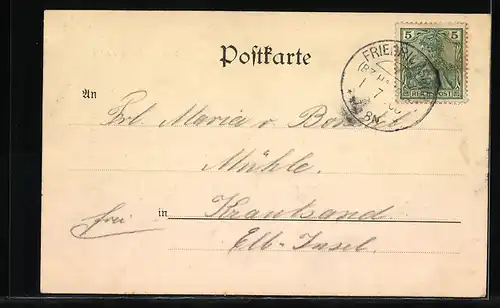 Postkarte
5 5
REICHSPOST
FRIEDRI
1 7
8N
An
Frl. Maria v.
Mühle.
frei
in Krautsand
Elb-Insel.